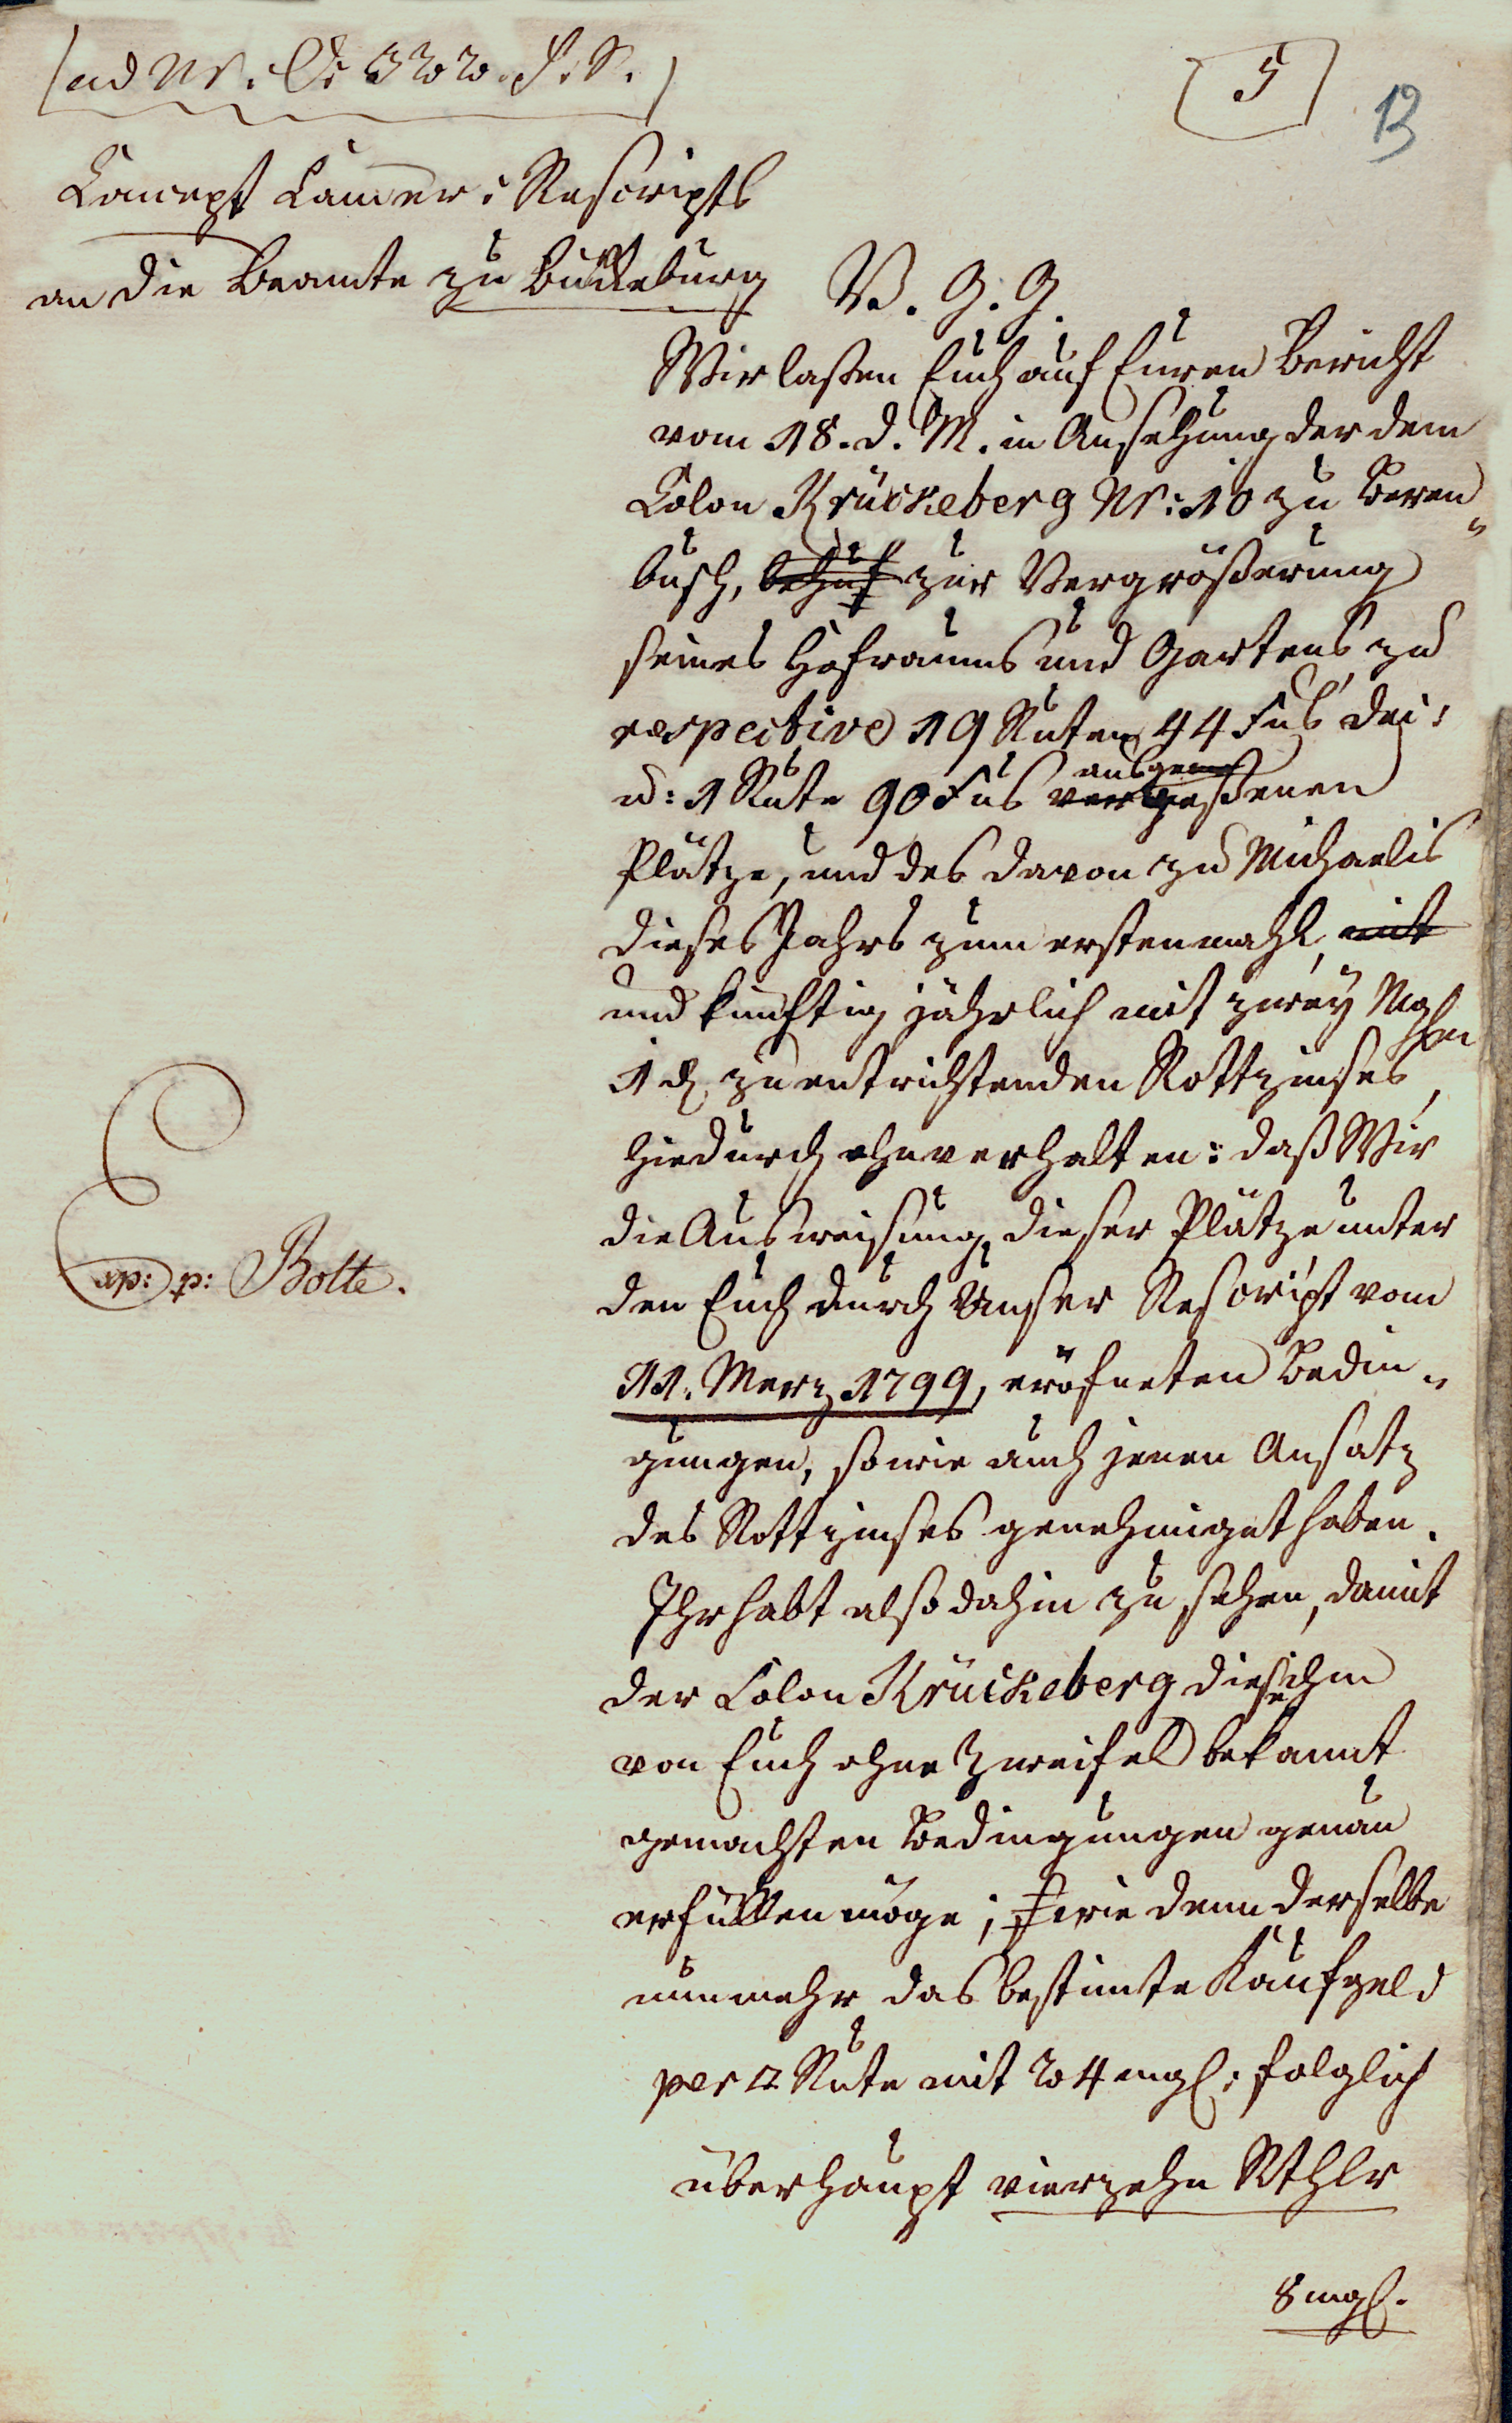 ad Nr.
5
13
Concept Cammer: Rescripts
an die Beamte zu Bückeburg
V. G. G.
Wir laßen Euch auf Euren Bericht
vom 18. d. M. in Ansehung der dem
Colon Krückeberg Nr: 10 zu Beren„
busch, behuf zur Vergrößerung
seines Hofraums und Gartens zu
respective 19 Ruten 44 Fus
u: 1 Rute 90 Fus ausgem
vergeßenen
Plätze, und des davon zu Michaelis
dieses Jahrs zum erstenmahl, mit
und künftig jährlich mit zwey Mgl
1 d zu entrichtenden Rottzinses,
hiedurch ohnverhalten: daß Wir
die Ausweisung dieser Plätze unter
den Euch durch Unser Rescript vom
11. Merz 1799, eröfneten Bedin„
gungen, sowie auch jenen Ansatz
des Rottzinses genehmiget haben.
Ihr habt also dahin zu sehen, damit
der Colon Krückeberg die ihm
von Euch ohne Zweifel bekannt
gemachten Bedingungen genau
erfüllen möge; wie denn derselbe
nunmehr das bestimte Kaufgeld
per □ Rute mit 24 mgl: folglich
überhaupt vierzehn Rthlr
8 mgl.
Exp: p: Bolte.